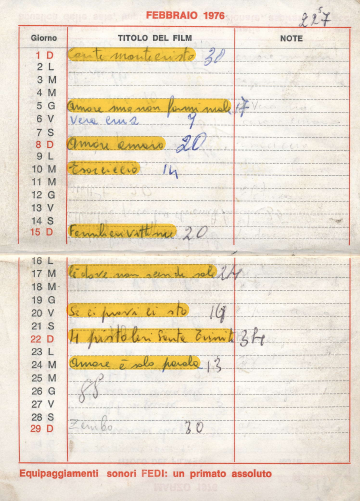 FEBBRAIO 1976
Giorno TITOLO DEL FILM NOTE
1 D Conte montecristo 38
2 L
3 M
4 M
5 G Amore mio non farmi male 17
6 V Vera Cruz 7
7 S
8 D Amore amaro 20
9 L
10 M 14
11 M
12 G
13 V
14 S
15 D 20
16 L
17 M là dove non scende sole 24
18 M
19 G
20 V Se ci provi ci sto 19
21 S
22 D 4 pistoleri Santa Trinità 34
23 L
24 M Amore è solo parola 13
25 M
26 G
27 V
28 S
29 D 30
Equipaggiamenti sonori FEDI: un primato assoluto